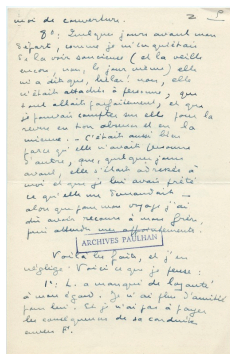 moi de couverture.
2
8°: Quelques jours avant mon
départ, comme je m'inquiétais
de la voir soucieuse (et la veille
encore, non, le jour même) elle
m'a dit que, hélas! non, elle
n'était attachée à personne, que
tout allait parfaitement, et que
je pouvais compter sur elle pour la
revue en ton absence et en la
mienne. - C'était aussi bien
parce qu'elle n'avait personne
d'autre, que, quelques jours
avant, elle s'était adressée à
moi et que je lui avais prêté
ce qu'elle me demandait
alors que pour mon voyage j'ai
dû avoir recours à mon frère,
ARCHIVES PAULHAN
Voilà les faits, et j'en
néglige. Voici ce que je pense:
1°: L. a manqué de loyauté
à mon égard. Je n'ai plus d'amitié
pour lui. Et je n'ai pas à payer
les conséquences de sa conduite
envers F.